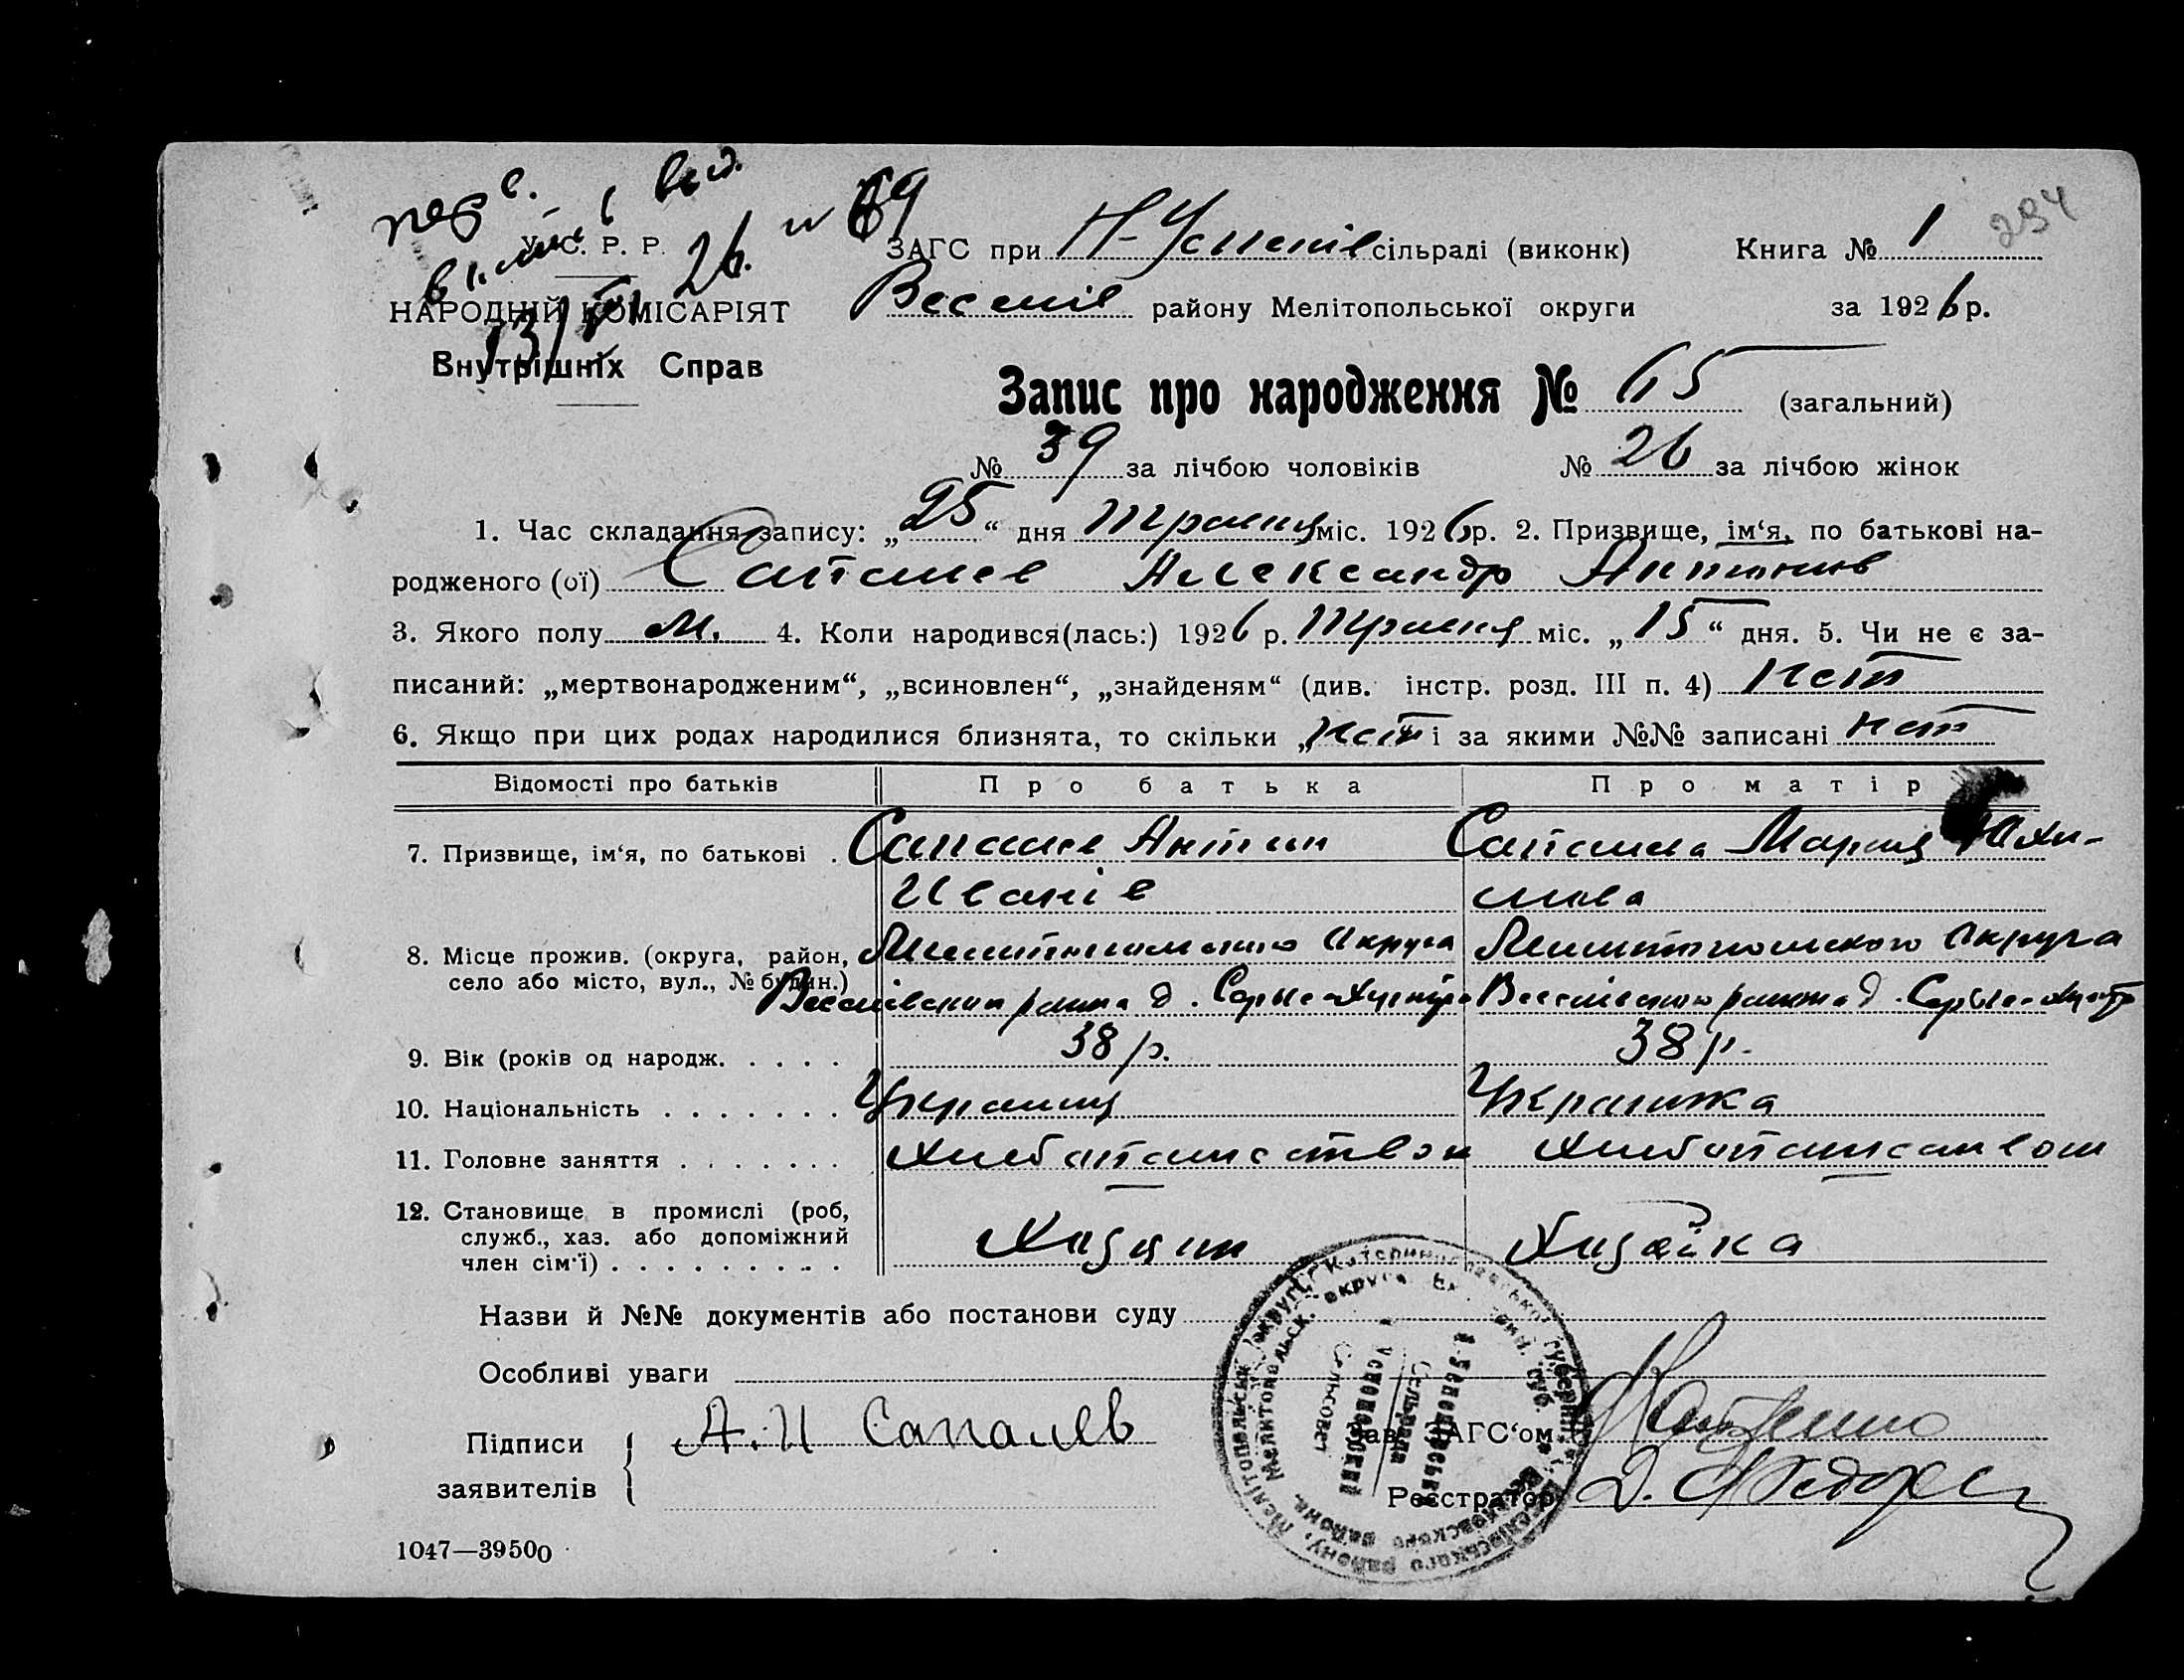 № 69
У. С. Р. Р. 26.
НАРОДНІЙ КОМІСАРІЯТ
Внутрішніх Справ
ЗАГС при Н-Успенів сільраді (виконк) Книга № 1 294
Веселів району Мелітопольської округи за 1926 р.
Запис про народження № 65 (загальний)
№ 39 за лічбою чоловіків № 26 за лічбою жінок
1. Час складання запису: „25“ дня Травня міс. 1926 р. 2. Призвище, ім‘я, по батькові на-
родженого (ої) Сапалев Александр Антонов
3. Якого полу м. 4. Коли народився(лась:) 1926 р. Травня міс. „15“ дня. 5. Чи не є за-
писаний: „мертвонародженим“, „всиновлен“, „знайденям“ (див. інстр. розд. III п. 4) нет
6. Якщо при цих родах народилися близнята, то скільки „нет“ і за якими №№ записані нет
Відомості про батьків Про батька Про матір
7. Призвище, ім‘я, по батькові . Сапалев Антон Сапалева Мария Юхи-
Иванів мова
8. Місце прожив. (округа, район, Мелитопольского Округа Мелитопольского Округа
село або місто, вул., № будин.) Веселівского района д. Веселівского района д.
9. Вік (років од народж. . . . . 38 р. 38 р.
10. Національність . . . . . . . Украинц Украинка
11. Головне заняття . . . . . . . Хлебопашеством Хлебопашеством
12. Становище в промислі (роб,
служб., хаз. або допоміжний Хазяин Хазяйка
член сім‘ї) . . . . . . . . .
Назви й №№ документів або постанови суду
Особливі уваги
Підписи А. И Сапалев
заявителів
Зав. ЗАГС‘ом
Реєстратор
Успеновский
Сельсовет
Сільрада
1047—39500